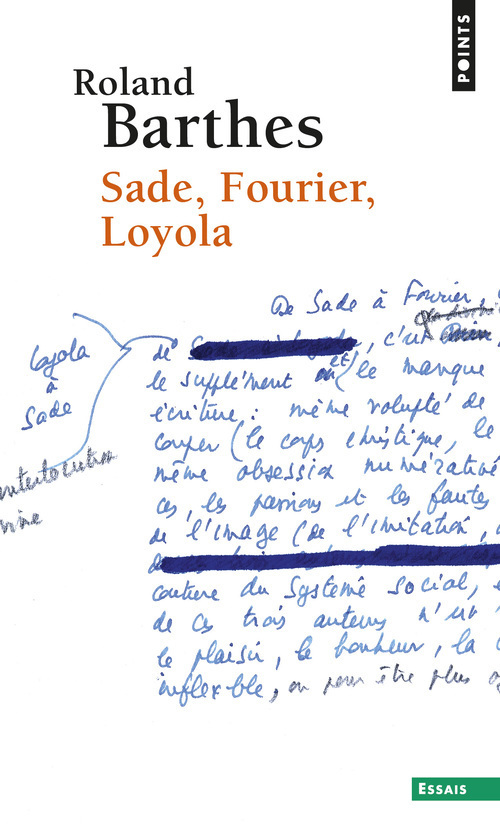 POINTS
Roland
Barthes
Sade, Fourier,
Loyola
De Sade à Fourier
Loyola
à
Sade
de , c'est
le supplément et le manque
écriture : même volupté de
couper (le corps christique, le
même obsession numérative
ces, les passions et les fautes
de l'image (de l'imitation,
couture du système social,
de ces trois auteurs n'est
le plaisir, le bonheur, la
inflexible, on peut être plus
ESSAIS